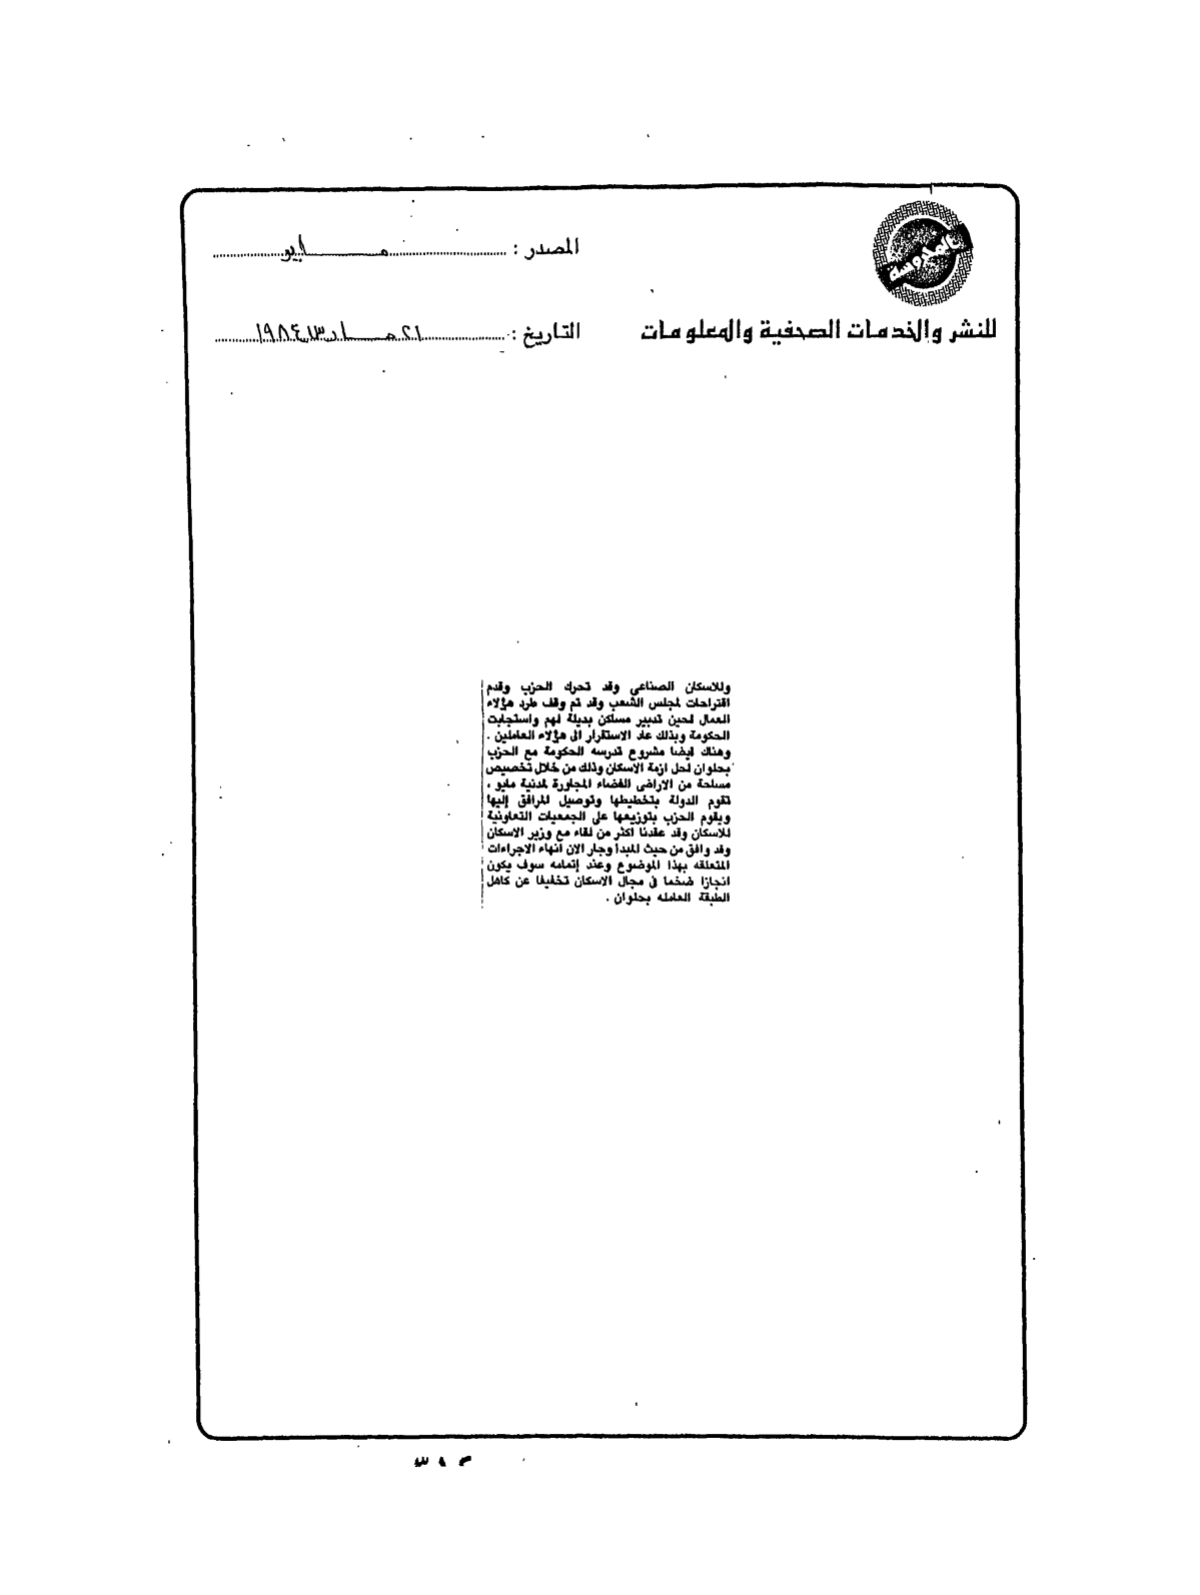 المصدر : مايو
للنشر والخدمات الصحفية والمعلومات
التاريخ : ٢١ مارس ١٩٨٤
وللاسكان الصناعى وقد تحرك الحزب وقدم
اقتراحات لمجلس الشعب وقد تم وقف طرد هؤلاء
العمال لحين تدبير مساكن بديلة لهم واستجابت
الحكومة وبذلك عاد الاستقرار الى هؤلاء العاملين .
وهناك ايضا مشروع تدرسه الحكومة مع الحزب
بحلوان لحل ازمة الاسكان وذلك من خلال تخصيص
مساحة من الاراضى الفضاء المجاورة لمدنية مايو ،
تقوم الدولة بتخطيطها وتوصيل المرافق إليها
ويقوم الحزب بتوزيعها على الجمعيات التعاونية
للاسكان وقد عقدنا اكثر من لقاء مع وزير الاسكان
وقد وافق من حيث المبدأ وجار الان انهاء الاجراءات
المتعلقه بهذا الموضوع وعند إتمامه سوف يكون
انجازا ضخما فى مجال الاسكان تخفيفا عن كاهل
الطبقة العامله بحلوان .